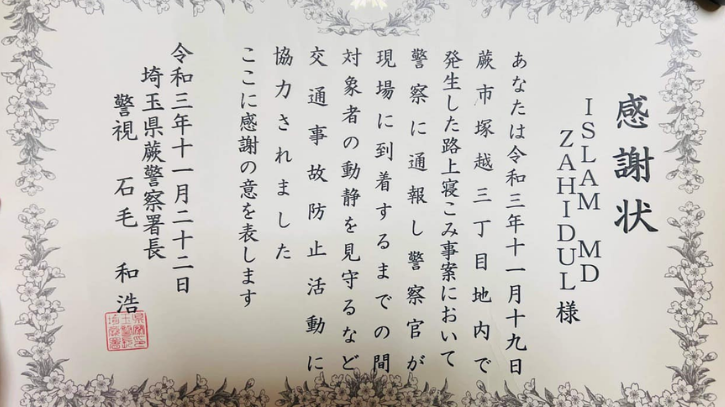 感謝状
ISLAM MD
ZAHIDUL 様
あなたは令和三年十一月十九日
蕨市塚越三丁目地内で
発生した路上寝こみ事案において
警察に通報し警察官が
現場に到着するまでの間
対象者の動静を見守るなど
交通事故防止活動に
協力されました
ここに感謝の意を表します
令和三年十一月二十二日
埼玉県蕨警察署長
警視 石毛 和浩